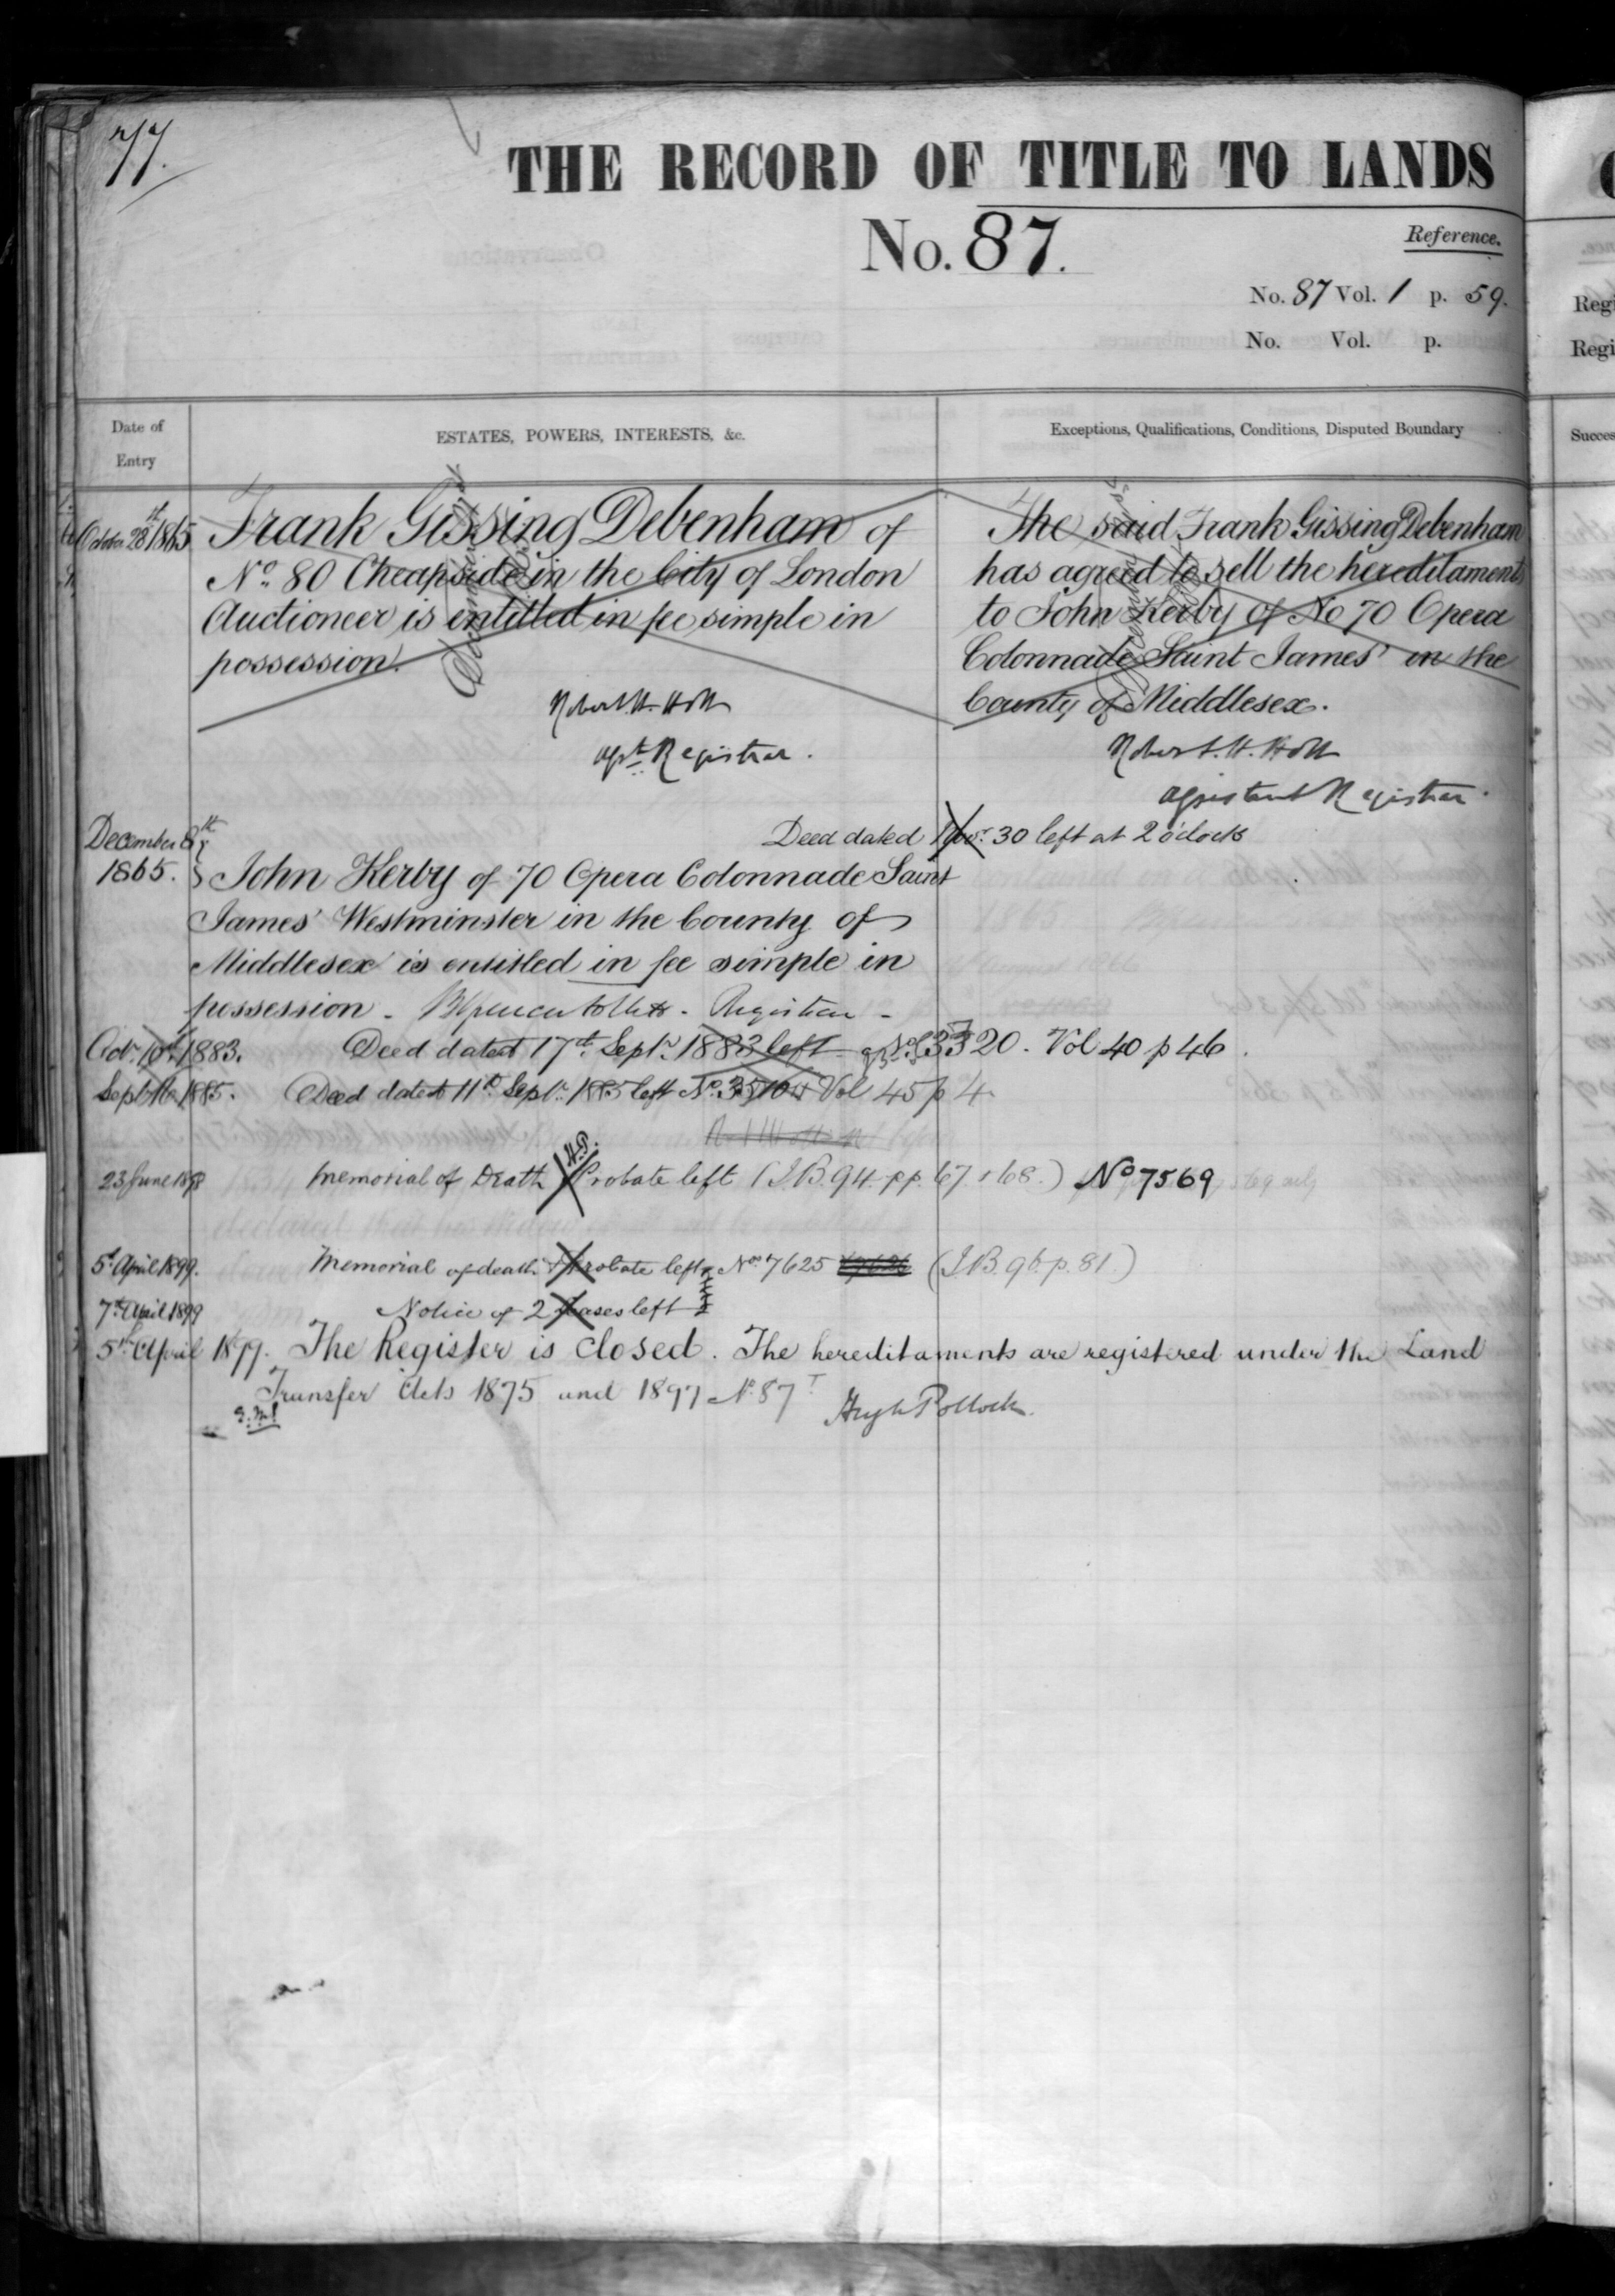 77.
THE RECORD OF TITLE TO LANDS
No. 87.
Reference.
No. 87 Vol. 1 p. 59.
No. Vol. p.
Date of Entry
ESTATES, POWERS, INTERESTS, &c.
Exceptions, Qualifications, Conditions, Disputed Boundary
October 28th 1865
Frank Gissing Debenham of
No. 80 Cheapside in the City of London
Auctioneer is entitled in fee simple in
possession.
Robert. H. Holt
Asst. Registrar.
The said Frank Gissing Debenham
has agreed to sell the hereditaments
to John Kerby of No 70 Opera
Colonnade Saint James' in the
County of Middlesex.
Robert. H. Holt
Assistant Registrar.
Deed dated Novr. 30 left at 2 o'clock
December 8th
1865.
John Kerby of 70 Opera Colonnade Saint
James' Westminster in the County of
Middlesex is entitled in fee simple in
possession - Registrar -
Octr. 10th 1883. Deed dated 17th Septr. 1883 left No. 3320. Vol 40 p 46.
Septr. 16 1885. Deed dated 11th Septr. 1885 left No. 3510 Vol 45 p 4
23 June 1898 Memorial of Death & Probate left (I.B. 94. pp. 67 & 68.) No 7569
5th April 1899. Memorial of death & Probate left No. 7625 (I.B. 96. p. 81.)
7th April 1899 Notice of 2 leases left
5th April 1899. The Register is closed. The hereditaments are registered under the Land
Transfer Acts 1875 and 1897 No. 87T
Hugh Pollock.
Regi
Regi
Succes